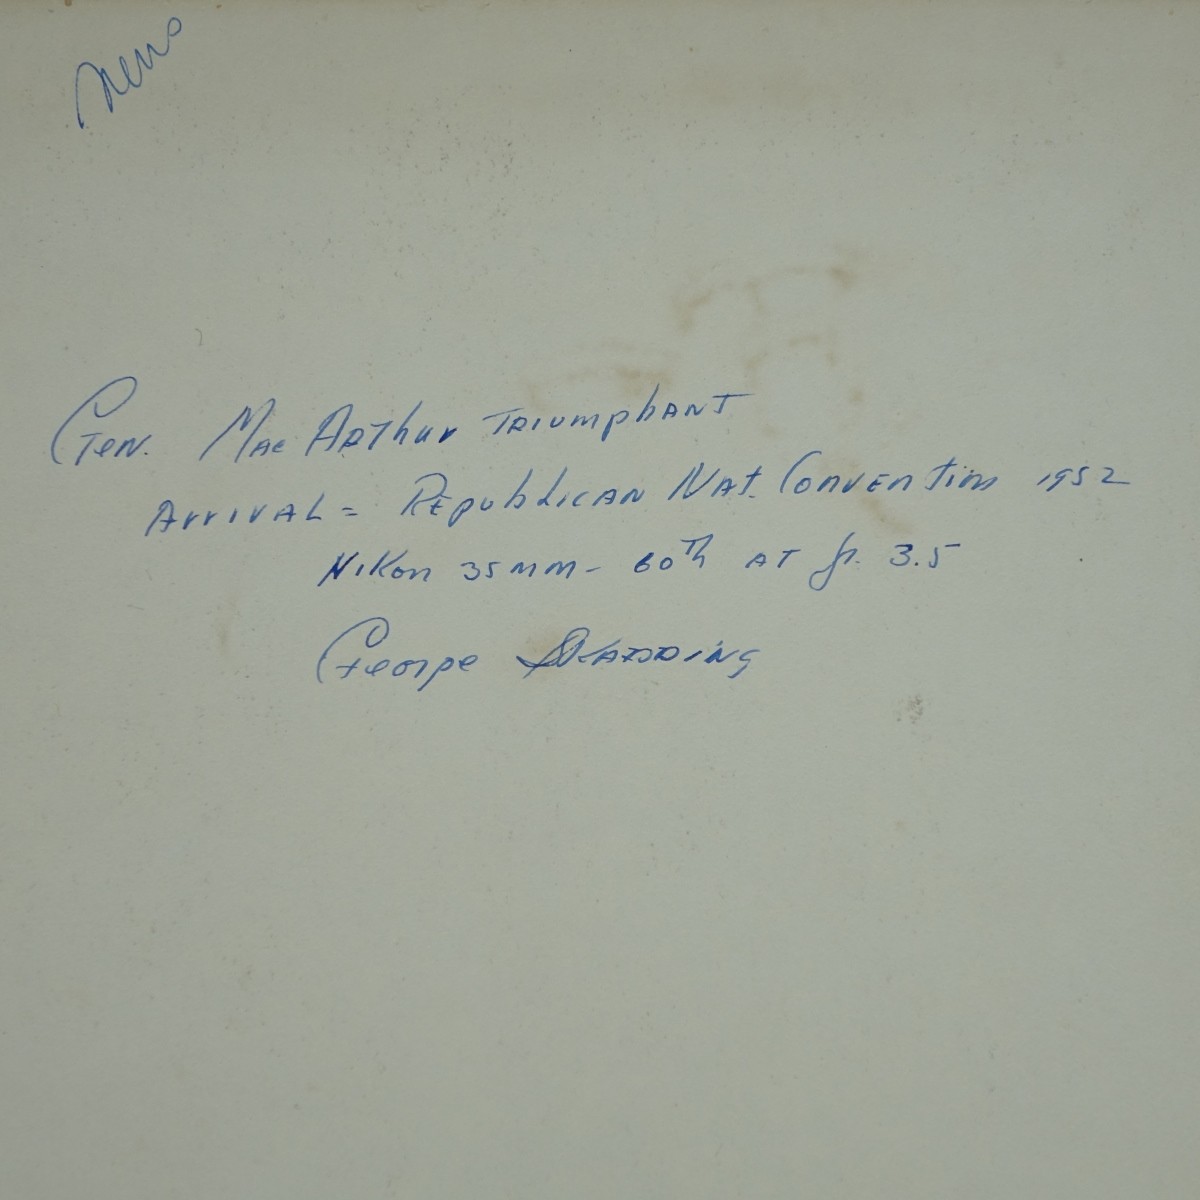 News
Gen. MacArthur Triumphant
Arrival = Republican Nat. Convention 1952
Nikon 35mm - 60th at f. 3.5
George Skadding